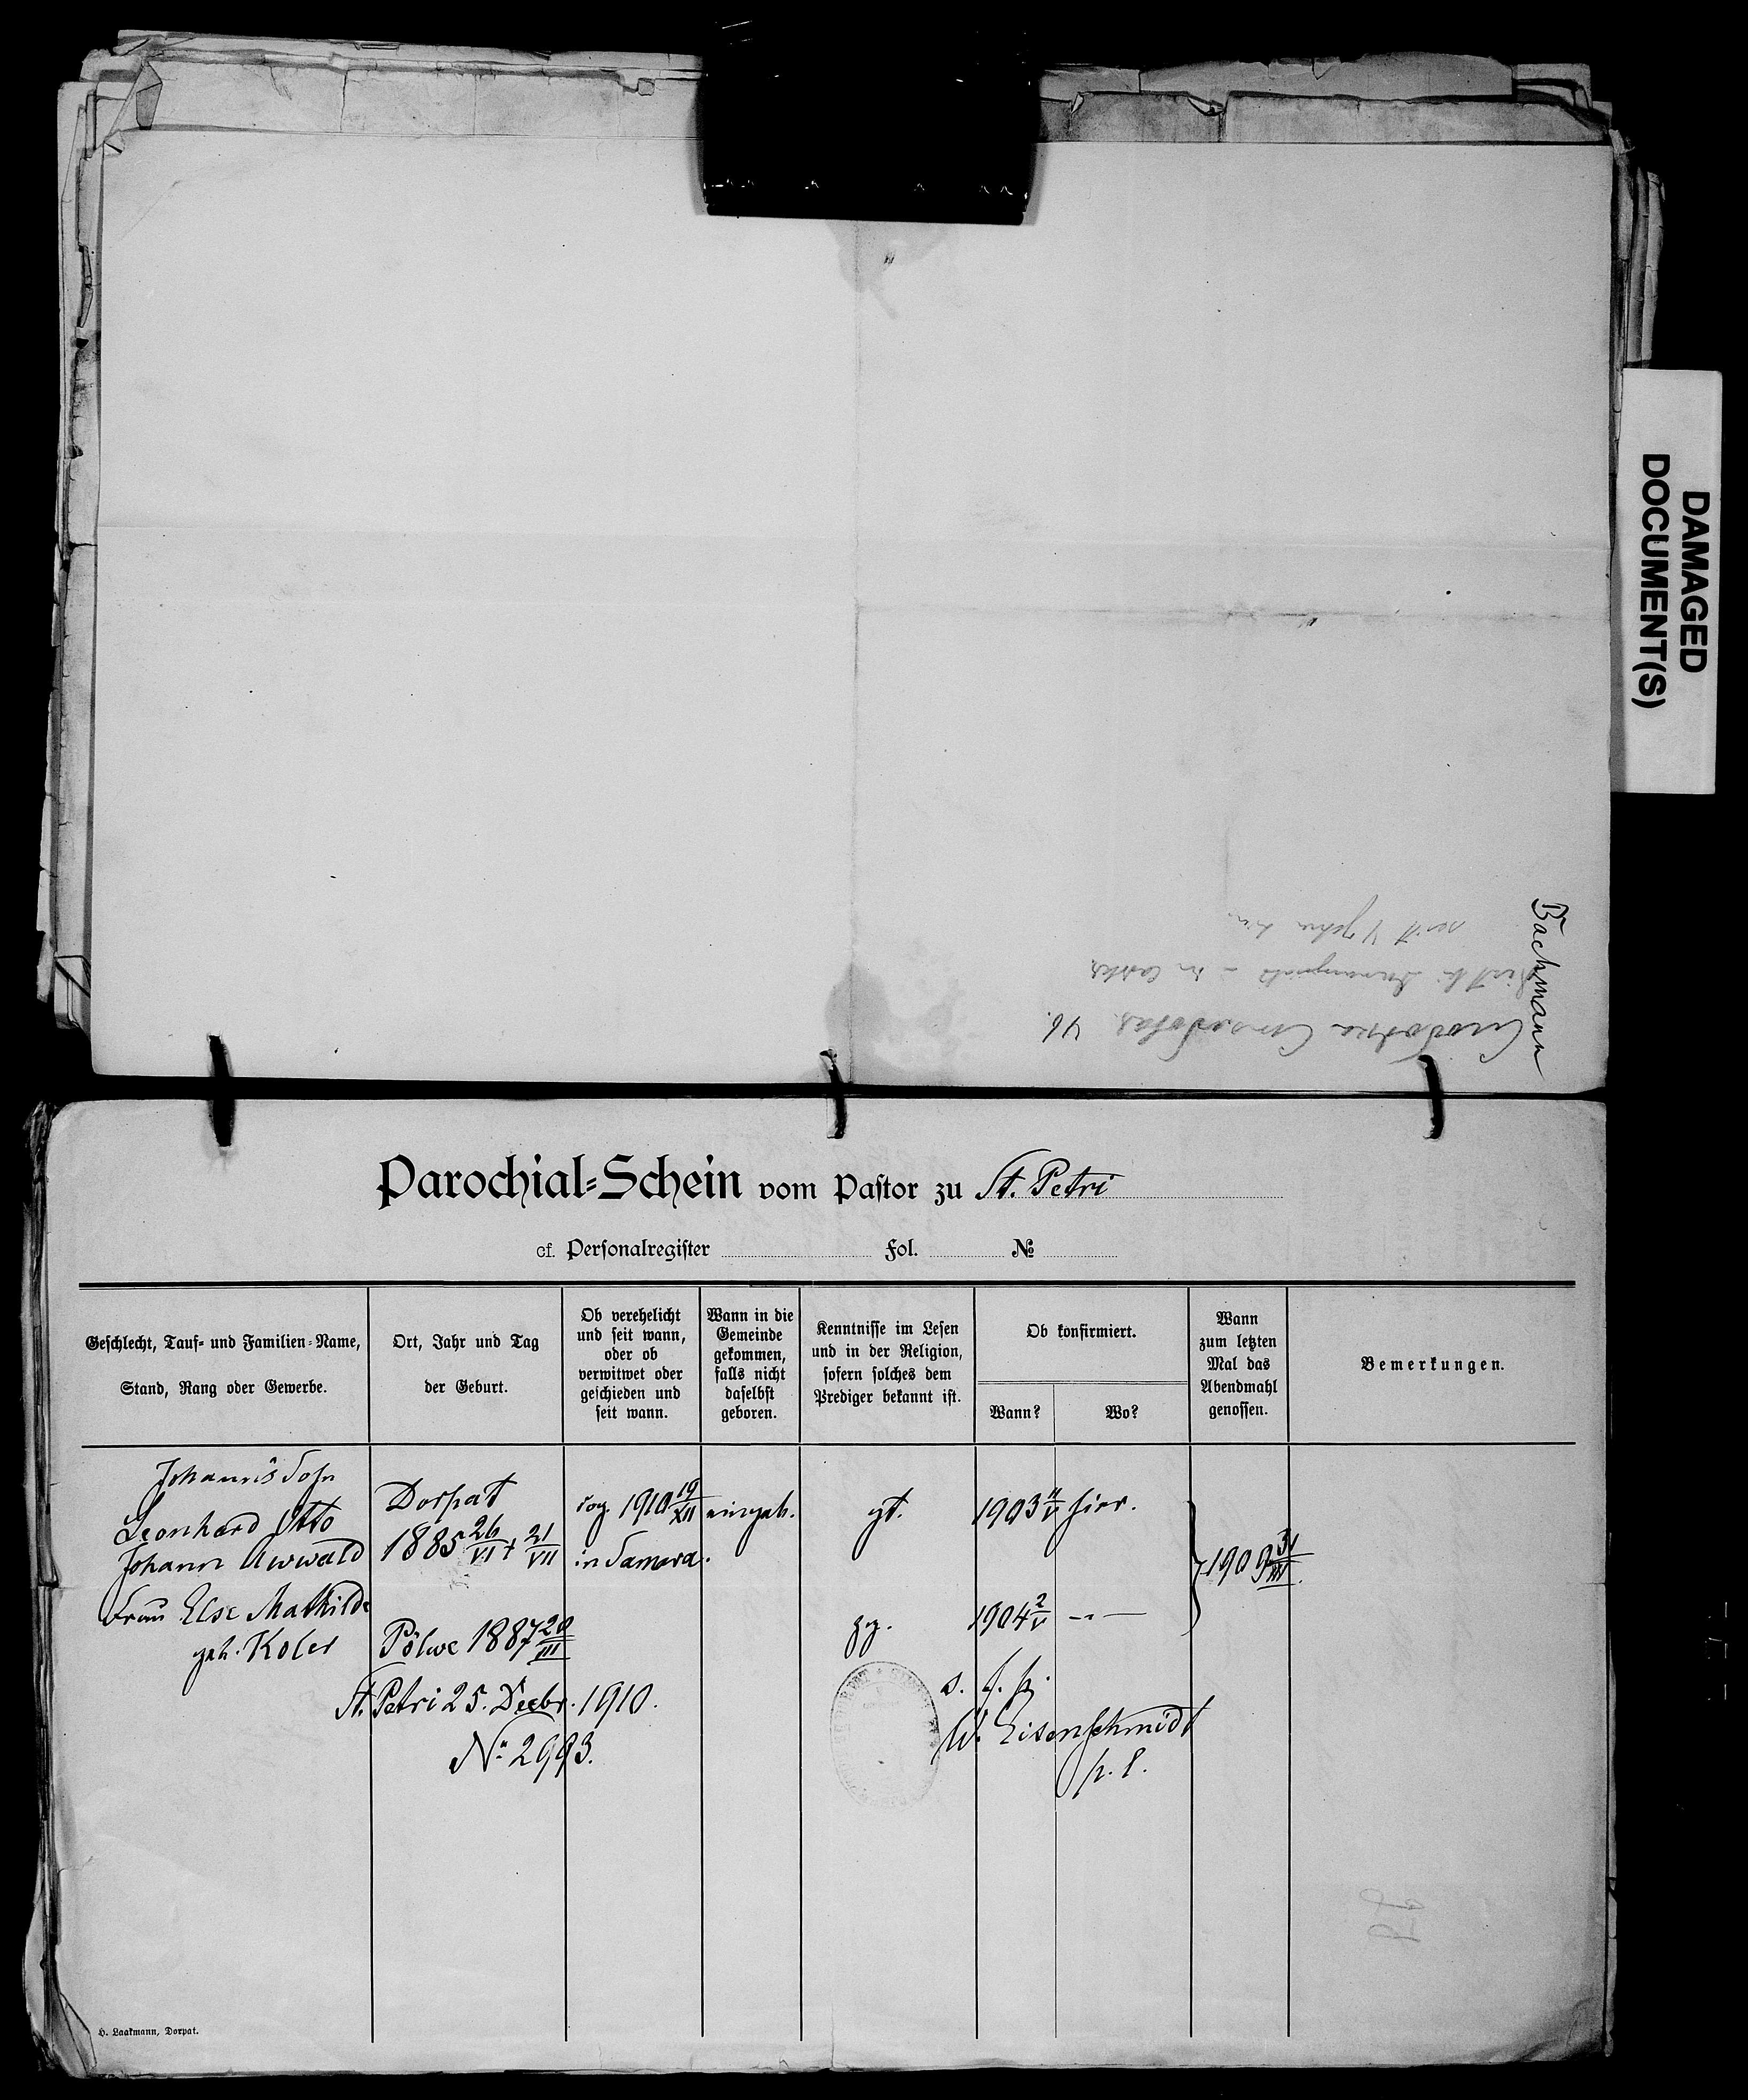 DAMAGED
DOCUMENT(S)
Bachmann
46.
Parochial-Schein vom Pastor zu St. Petri
cf. Personalregister Fol. №
Geschlecht, Tauf- und Familien-Name,
Stand, Rang oder Gewerbe.
Ort, Jahr und Tag
der Geburt.
Ob verehelicht
und seit wann,
oder ob
verwitwet oder
geschieden und
seit wann.
Wann in die
Gemeinde
gekommen,
falls nicht
daselbst
geboren.
Kenntnisse im Lesen
und in der Religion,
sofern solches dem
Prediger bekannt ist.
Ob konfirmiert.
Wann?
Wo?
Wann
zum letzten
Mal das
Abendmahl
genossen.
Bemerkungen.
Johann's Sohn
Leonhard Otto
Johann Awwald
Dorpat
1885 26/VI + 21/VII
cop. 1910 19/XII
in Samara.
eingeb.
gt.
1903 11/V hier.
} 1909 31/III.
Frau Else Mathilde
geb. Koler
Pölwe 1887 20/III
zg.
1904 2/V —"—
St. Petri 25. Decbr. 1910.
№ 2993.
s. f. p.
W. Eisenschmidt
p. l.
H. Laakmann, Dorpat.